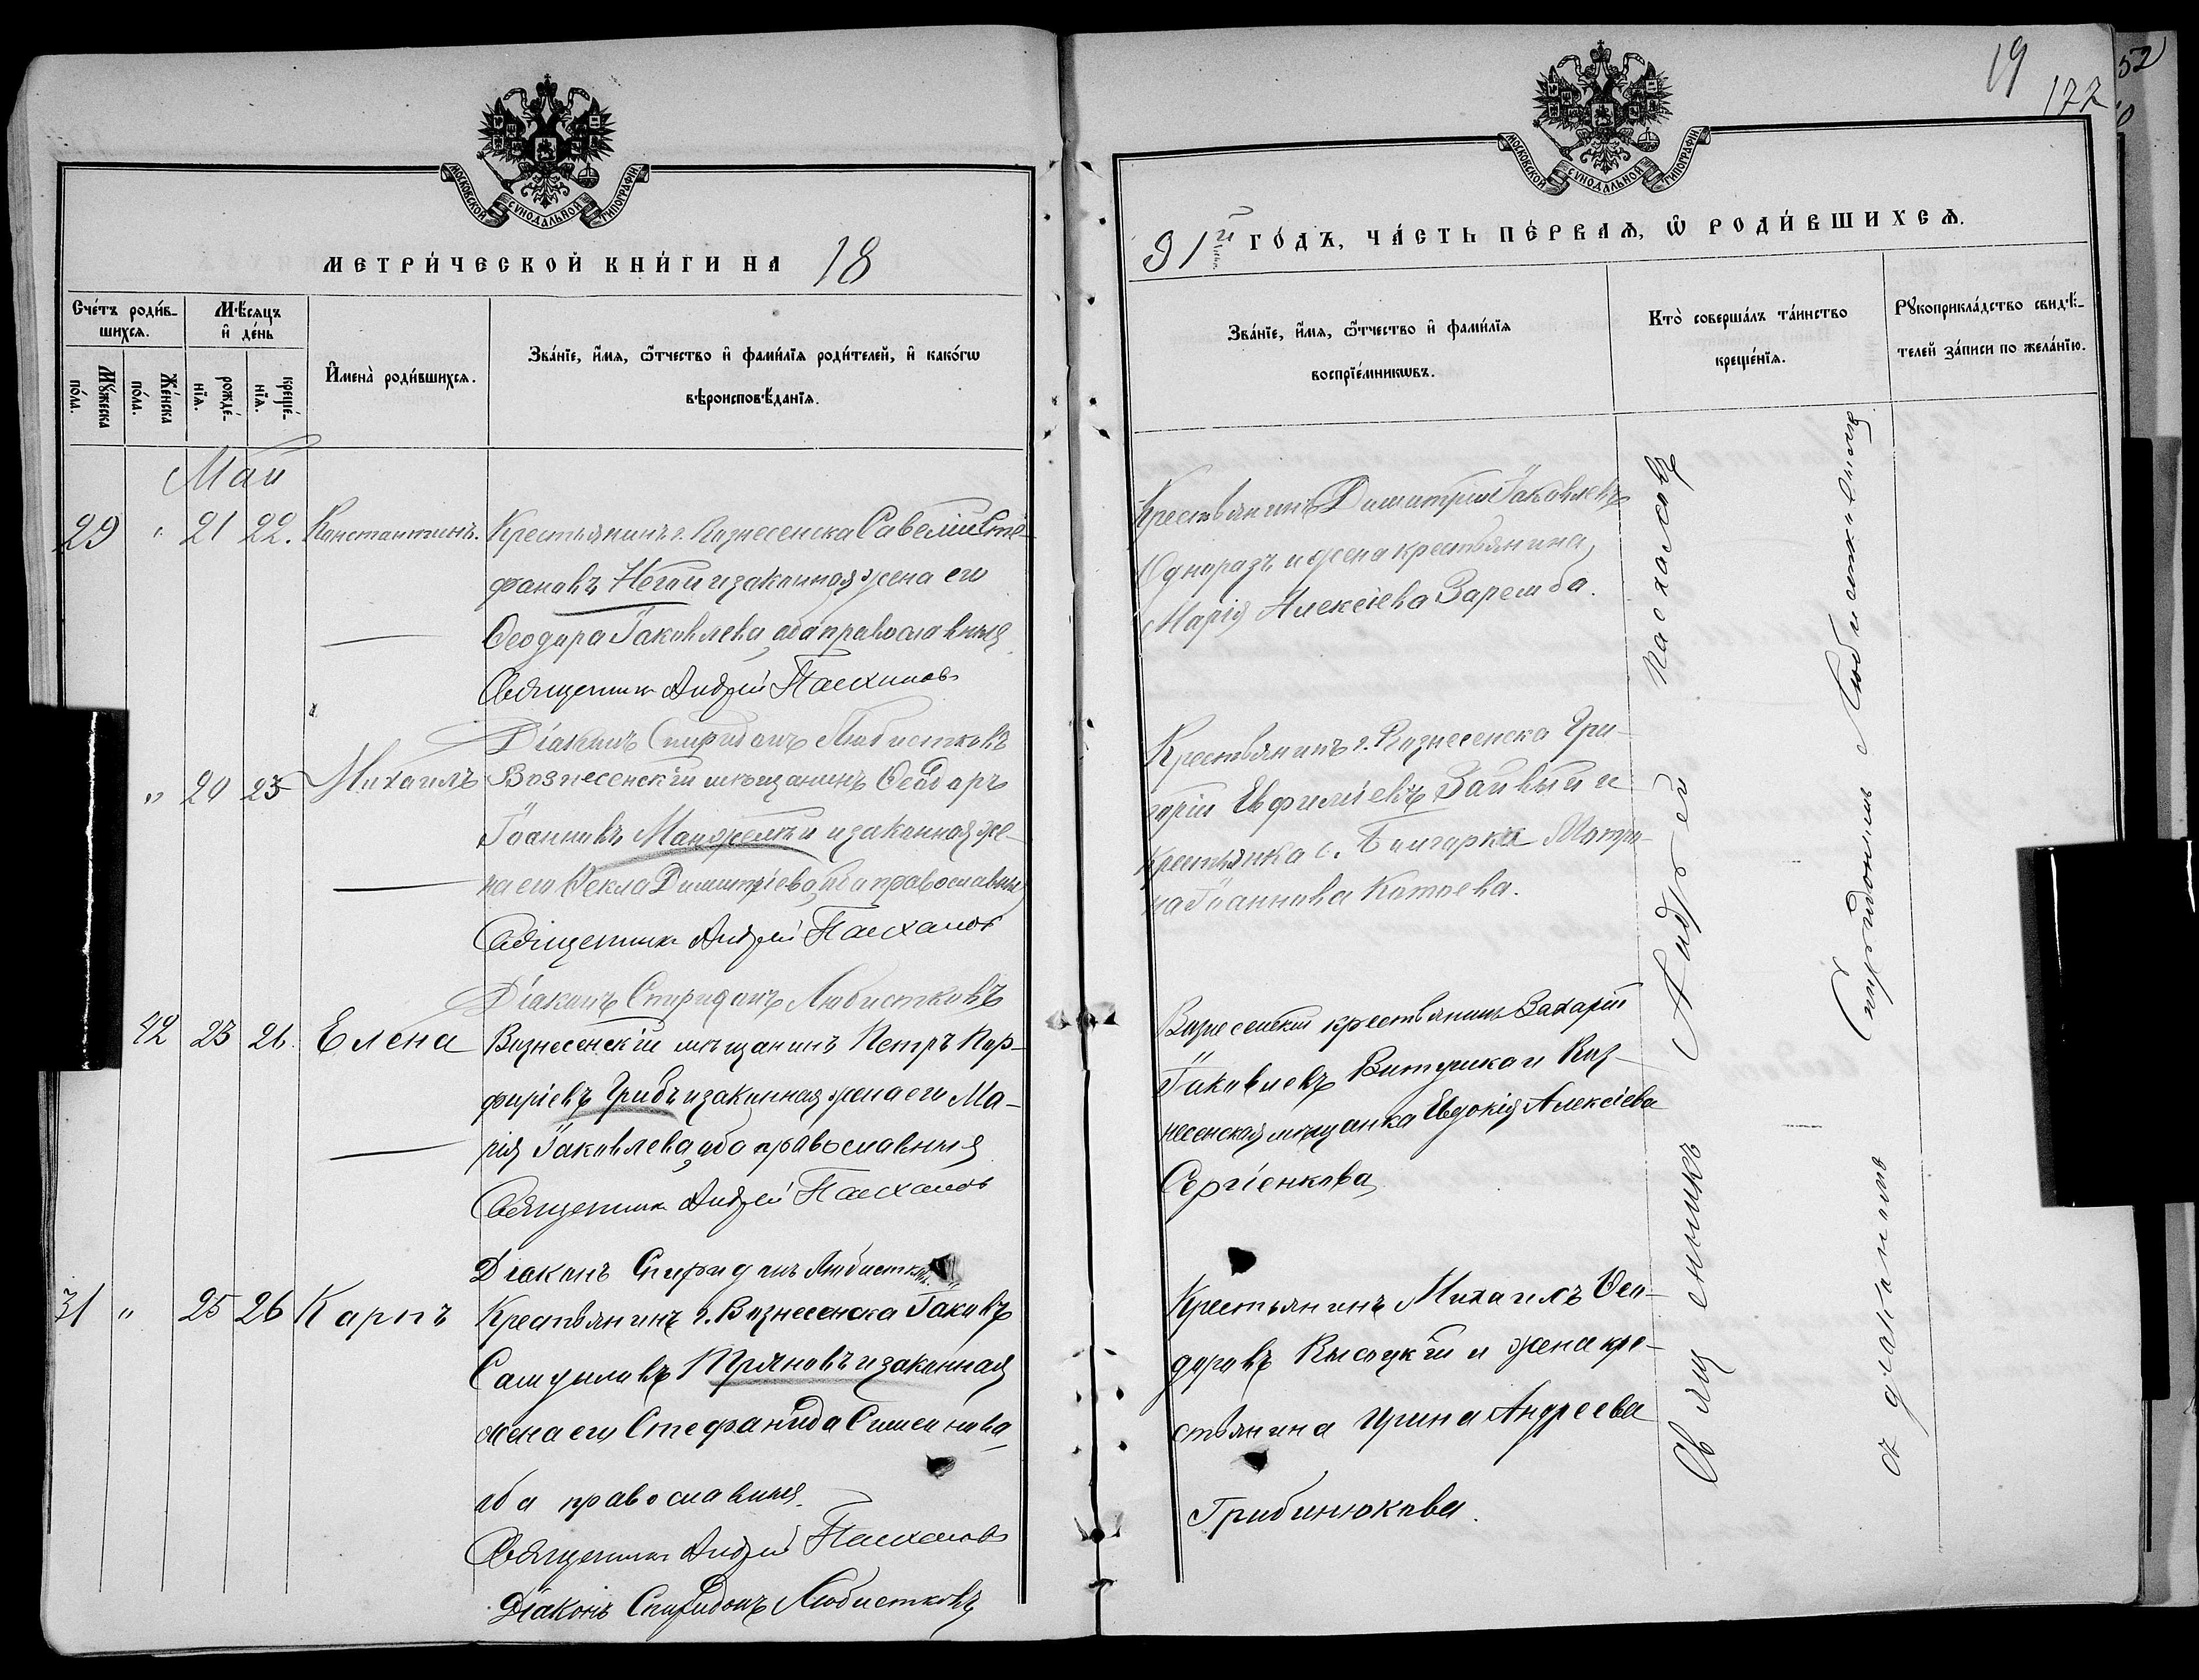 МОСКОВСКОЙ СУНОДАЛЬНОЙ ТИПОГРАФІИ
МЕТРИ́ЧЕСКОЙ КНИ́ГИ НА 18
Сче́тъ роди́в-
шихсѧ.
Мꙋ́жеска
по́ла.
Же́нска
по́ла.
Мѣ́сѧцъ
и҆ де́нь
рожде́-
нїѧ.
креще́-
нїѧ.
И҆мена̀ роди́вшихсѧ.
Зва́нїе, и҆́мѧ, ѻ҆́тчество и҆ фами́лїѧ роди́телей, и҆ како́гѡ
вѣроисповѣ́данїѧ.
Май
29 " 21 22. Константинъ. Крестьянинъ г. Вознесенска Савелій Сте-
фановъ и законная жена его
Ѳеодора Іаковлева, оба православныя
Священникъ Андрей Пасхаловъ
Діаконъ Спиридонъ Любистковъ
" 20 23 Михаилъ Вознесенскій мѣщанинъ Ѳеодоръ
Іоанновъ и законная же-
на его Ѳекла Димитріева, оба православны
Священникъ Андрей Пасхаловъ
Діаконъ Спиридонъ Любистковъ
22 23 26. Елена Вознесенскій мѣщанинъ Петръ Пор-
фиріевъ Грибъ и законная жена его Ма-
рія Іаковлева, оба православныя
Священникъ Андрей Пасхаловъ
Діаконъ Спиридонъ Любистковъ
31 " 25 26 Карпъ Крестьянинъ г. Вознесенска Іаковъ
Самуиловъ и законная
жена его Стефанида Симеонова
оба православныя.
Священникъ Андрей Пасхаловъ
Діаконъ Спиридонъ Любистковъ
19
177
52
МОСКОВСКОЙ СУНОДАЛЬНОЙ ТИПОГРАФІИ
91й ГО́ДЪ, ЧА́СТЬ ПЕ́РВАѦ, Ѡ҆ РОДИ́ВШИХСѦ.
Зва́нїе, и҆́мѧ, ѻ҆́тчество и҆ фами́лїѧ
воспрїе́мникѡвъ.
Кто̀ соверша́лъ та́инство
креще́нїѧ.
Рꙋкоприкла́дство свидѣ́-
телей за́писи по жела́нїю.
Крестьянинъ Димитрій Іаковлевъ
Одноразъ и жена крестьянина
Марія Алексіева Заремба.
Крестьянинъ г. Вознесенска Гри-
горій Евфиміевъ и
крестьянка с. Болгарка Матро-
на Іоаннова Котоева.
Вознесенскій крестьянинъ Захарій
Іаковлевъ и Воз-
несенская мѣщанка Евдокія Алексіева
Сергіенкова
Крестьянинъ Михаилъ Ѳео-
доровъ Высоцкій и жена кре-
стьянина Ирина Андреева
Грибинюкова.
Священникъ Андрей Пасхаловъ
съ діакономъ Спиридономъ Любистковымъ